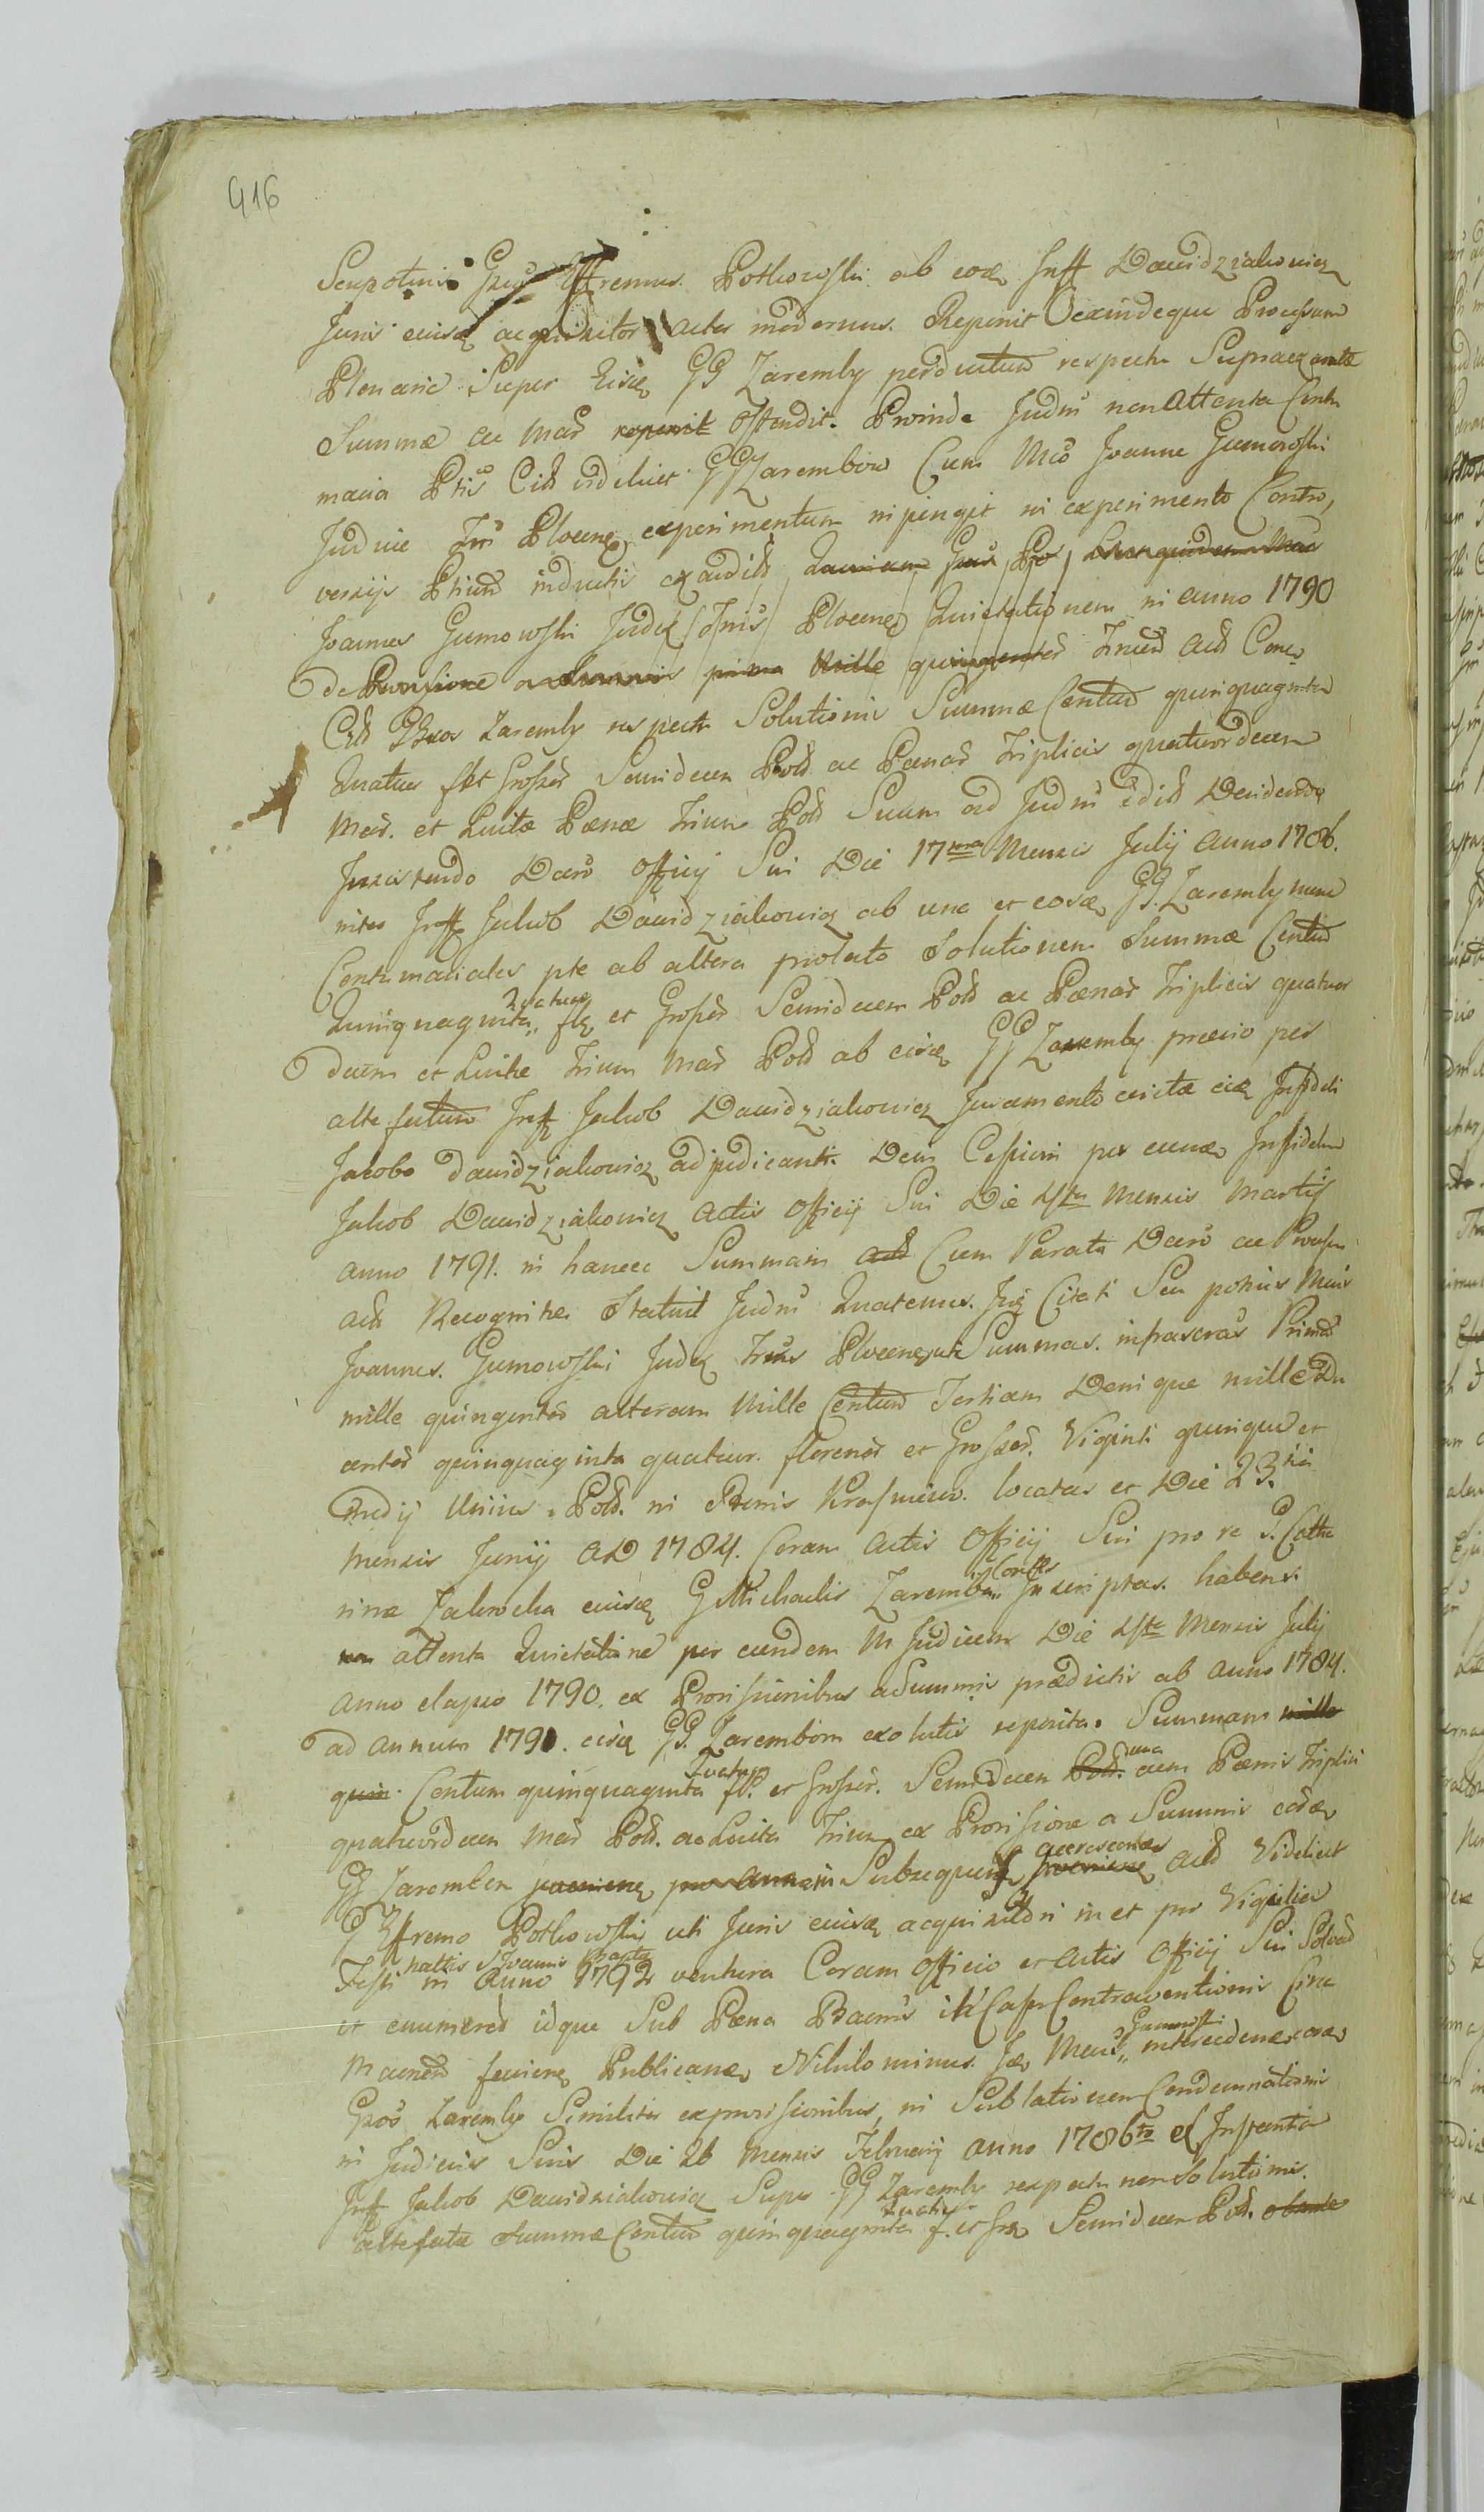 416
Seu potius Gsus Effremus Potkowski ab eod Inff Dawidziakowicz
Juris eiusd acquisitor actor modernus. Reperit exindeque Processum
Plenarie Super Eisd GG Zaremby perductum respectu Supraexcontæ
Summæ ac Mar reperit Ostendit. Proinde Judm non attenta Contu
macia Ptis Citt videlicet GG Zarembow Cum Mco Joanne Gumowski
Judice Tri Plocen experimentum inpingit in experimento Contro,
versijs Ptium inductis exaudit Quoniam Gsus Por Licet quidem Mcus
Joannes Gumowski Judex Tris Plocen Quietationem in anno 1790
de Provisione a Summis prima Mille quingentor Trium act Conc
Citt Gsos Zaremby respectu Solutionis Summæ Centum quinquaginta
Quatuor flor Grosser Semidecem Pold ac Pænar Triplicis quatuordecem
Mar. et Luitæ Pænæ Trium Pold Suum ad Judm edit Deridendo
Jurisrendo Decro Officij Sui Die 17ma Mensis Julij Anno 1786.
inter Inff Jakob Dawidziakowicz ab una et eosd GG. Zaremby nunc
Contumaciales pte ab altera prolato Solutionem Summæ Centum
Quinquaginta Quatuor flor et Grosser Semidecem Pold ac Pænar Triplicis quatuor
decem et Luitæ Trium Mar Pold ab eisd GG Zaremby prævio per
alte fatum Inff Jakob Dawidziakowicz Juramento evictæ eid Infideli
Jacobo Dawidziakowicz adjudicanti. Dein Cessioni per eund Infidelem
Jakob Dawidziakowicz Actis Officij Sui Die 4ta Mensis Martij
Anno 1791. in hancce Summam act Cum Parata Decro ac Processu
act Recognitæ Statuit Judm Quatenus. Inf Citati Seu potius Mcus
Joannes. Gumowski Judex Tris Plocen uti Summas. infrascras Primam
mille quingentor alteram Mille Centum Tertiam Denique mille Du
centor quinquaginta quatuor. florenor et Grosser. Viginti quinque et
medij Unius. Pold. in Bonis Krasniew. locatas et Die 23tia
Mensis Junij AD 1784. Coram Actis Officij Sui pro re S. Catha
rinæ Zakrocka eiusd G Michaelis Zaremba Consortis Inscriptas. habens.
non attenta Quietatione per eundem M Judicem Die 4ta Mensis Julij
Anno elapso 1790. ex Provisionibus a Summis prædictis ab Anno 1784.
ad Annum 1791. eisd GG. Zarembom exolutis reperita. Summam mille
quin Centum quinquaginta Quatuor fl. et Grosser. Semidecem Pold. una cum Pænis Triplici
quatuordecem Mar Pold. ac Luita Trium ex Provisione a Summis eod
GG Zaremben proveniend pro anno in Subsequend proveniend accrescend act Videlicet
G Effremo Potkowski uti Juris eiusd acquisitori in et pro Vigilia
Festi nattis S Joannis Bapta in Anno 1792 ventura Coram Officio et Actis Officij Sui Solvat
et enumeret idque Sub Pæna Bacnis in Casu Contraventionis Citra
Maened feriend Publicand Nihilominus. Id Mcus Gumowski intercedend coræ
Gsos Zaremby Similiter ex provisionibus, in Sublationem Condemnationis
in Judicijs Suis Die 26 Mensis Februarij Anno 1786to ex Instantia
Inff Jakob Dawidziakowicz Super GG Zaremby respectu non Solutionis.
altefatæ Summæ Centum quinquaginta Quatuor f. et Gros Semidecem Pold. obtente